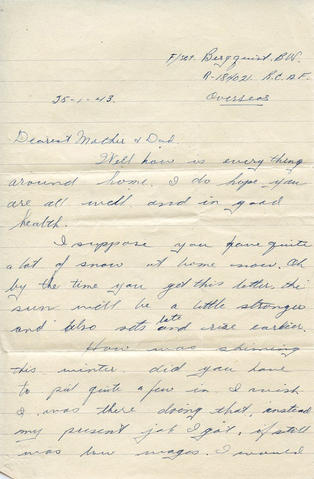 F/Sgt. Bergquist B.W.
R-184021 R.C.A.F.
25-1-43. Overseas
Dearest Mother & Dad.
Well how is every thing
around home. I do hope you
are all well and in good
health.
I suppose you have quite
a lot of snow at home now. Oh
by the time you get this letter the
sun will be a little stronger
and also sets late and rise earlier.
How was skinning
this winter did you have
to put quite a few in. I wish
I was there doing that, instead
my present job I got, if still
was low wages. I would